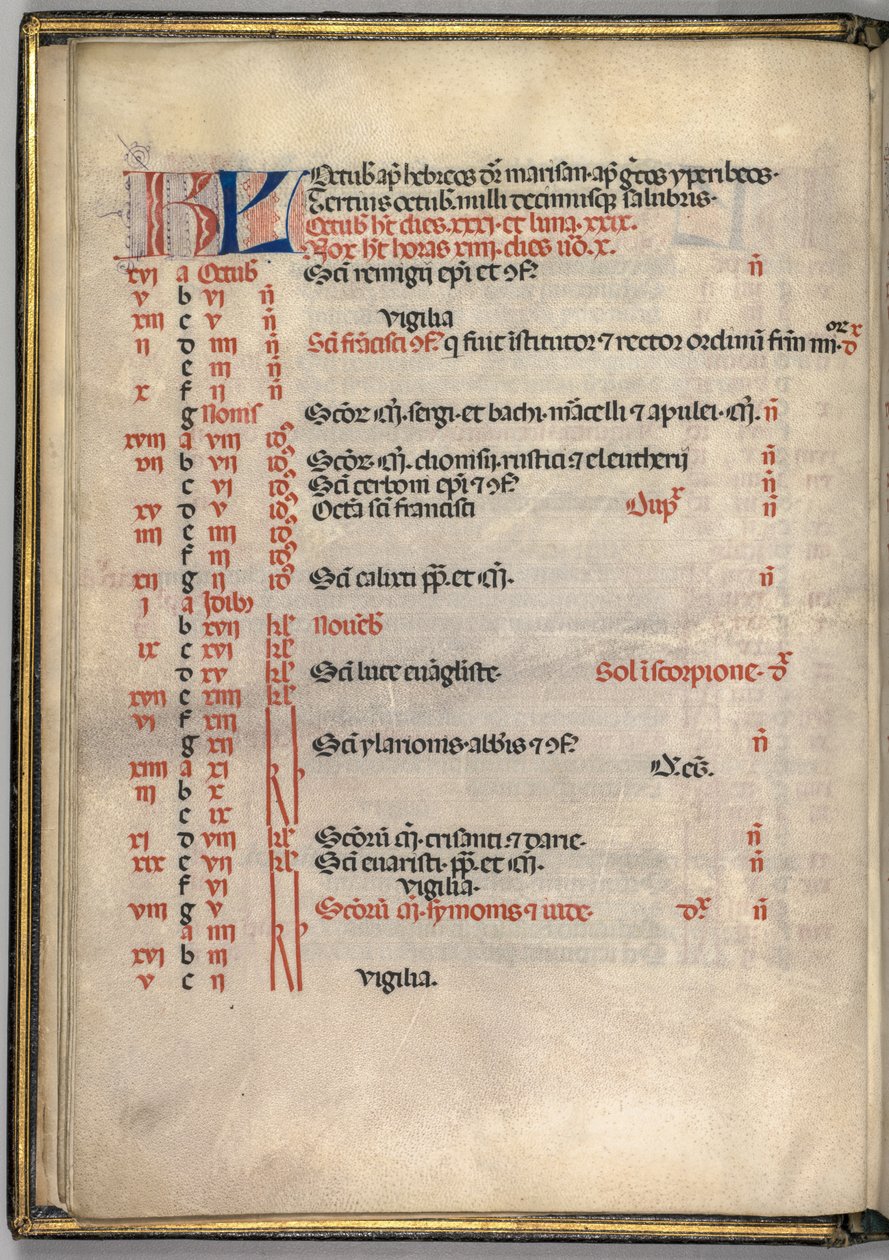 KL Octub̄ ap̄ hebreos dr̄ marisan · ap̄ gͬcos yperibeos ·
Tertius octub̄ · nulli decimusqꝫ salubris ·
Octub̄ ht̄ dies · xxxi · et luna · xxix ·
Nox ht̄ horas xiiii · dies uo̅ · x ·
xvi a Octub̄ Sc̄i remigij ep̄i et ꝯf̄ n̄
v b vi n̄
xiii c v n̄ vigilia
ii d iiii n̄ Sc̄i frācisci ꝯf̄ q fuit īstitutor ⁊ rector ordinū frm̄ mi · orꝫ dx
e iii n̄
x f ii n̄
g Nonis Sc̄oꝝ m̄ · sergi · et bachi · mͣcelli ⁊ apulei · m̄ · n̄
xviii a viii idꝰ
vii b vii idꝰ Sc̄oꝝ · m̄ · dionisij · rustici ⁊ eleutherij n̄
c vi idꝰ Sc̄i cerboni ep̄i ⁊ ꝯf̄ n̄
xv d v idꝰ Octā sc̄i francisci Dupx n̄
iiii e iiii idꝰ
f iii idꝰ
xii g ii idꝰ Sc̄i calixti pp̄ · et m̄ · n̄
i a Idibꝫ
b xvii kl̄ Nouēb̄
ix c xvi kl̄
d xv kl̄ Sc̄i luce euāgliste · Sol ī scorpione · dx
xvii e xiiii kl̄
vi f xiii
g xii Sc̄i ylarionis · abb̄is ⁊ ꝯf̄ n̄
xiiii a xi D · eg̅ ·
iii b x
c ix
xi d viii kl̄ Sc̄orū m̄ · crisanti ⁊ darie · n̄
xix e vii kl̄ Sc̄i euaristi · pp̄ · et m̄ · n̄
f vi vigilia ·
viii g v Sc̄orū m̄ · symonis ⁊ iude · dx n̄
a iiii kl
xvi b iii
v c ii vigilia ·